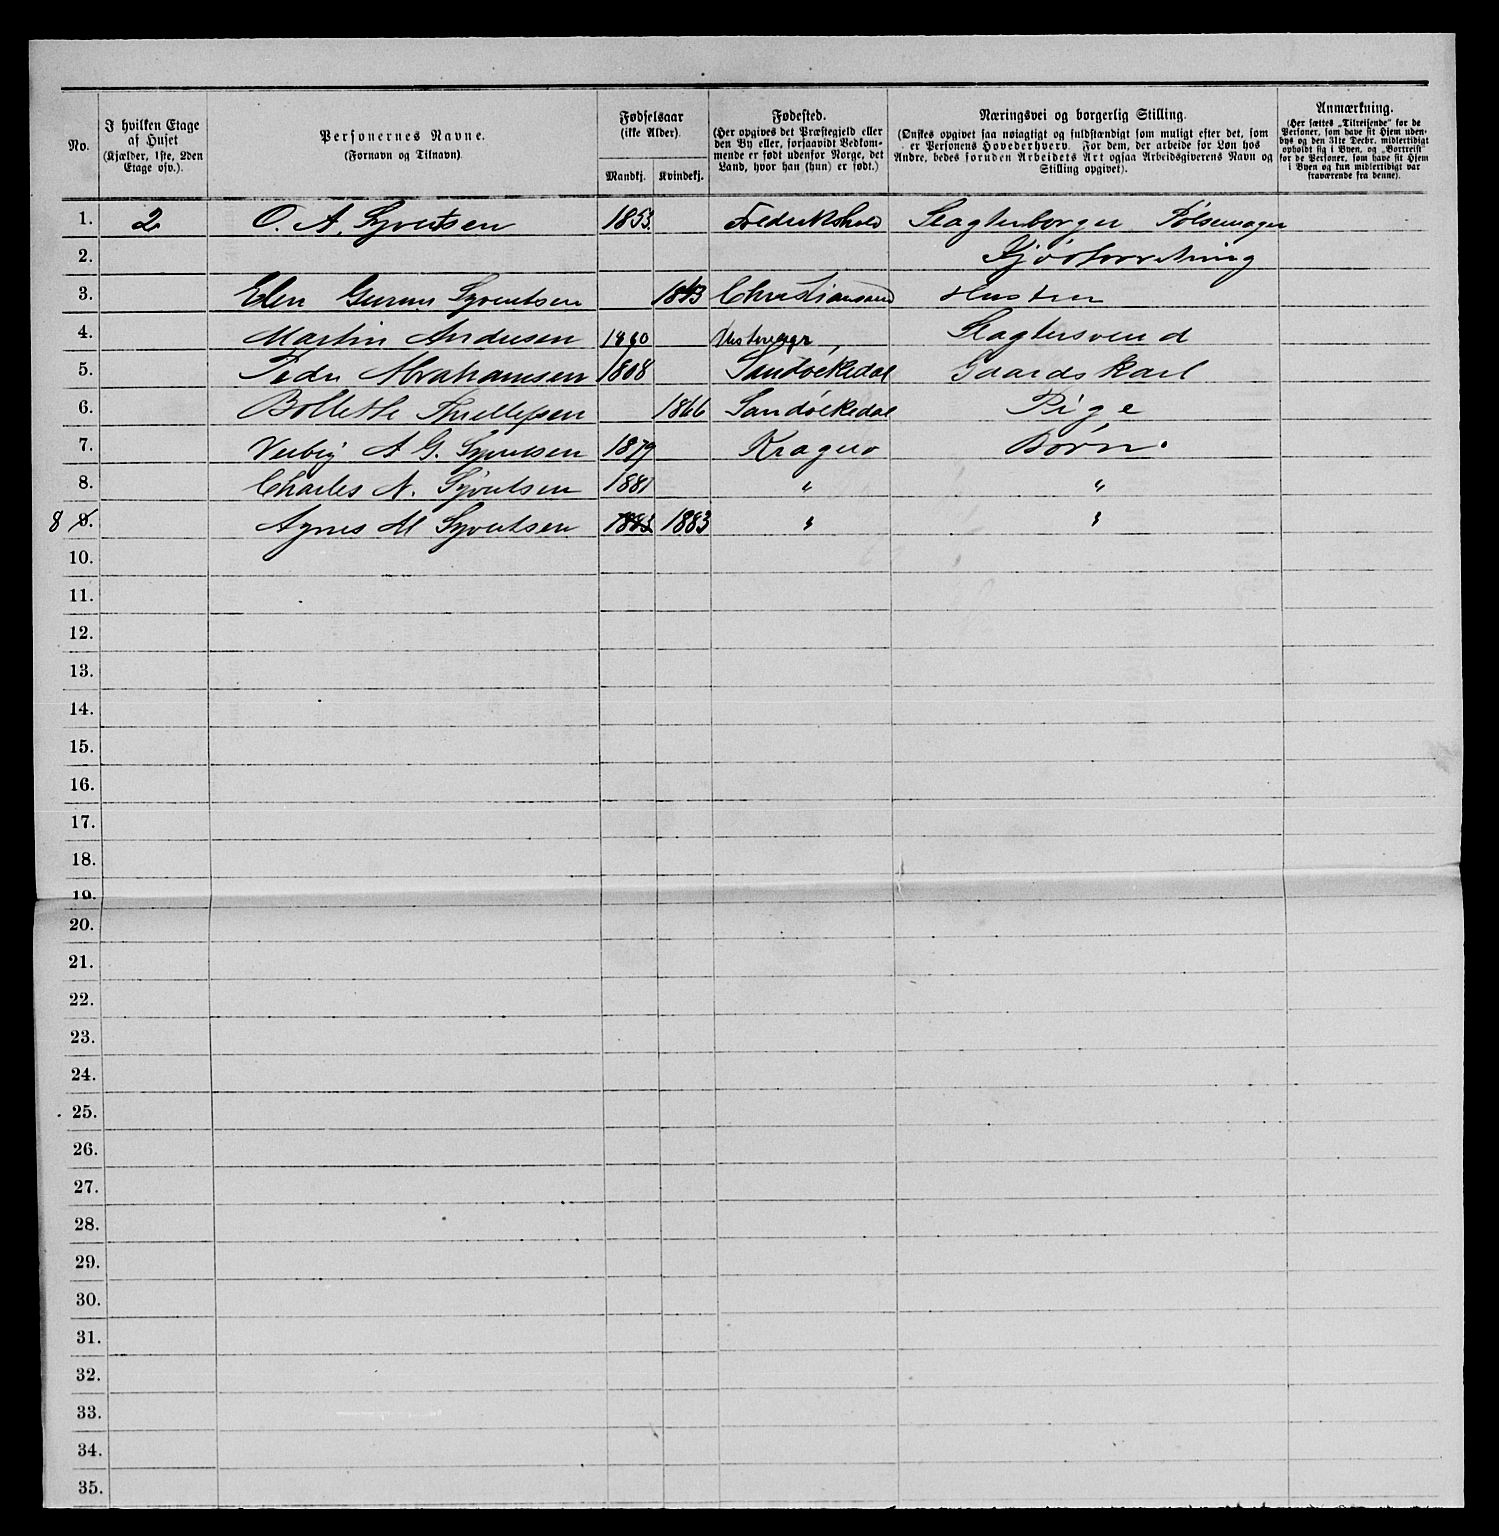 No.
I hvilken Etage
af Huset
(Kjælder, 1ste, 2den
Etage osv.).
Personernes Navne.
(Fornavn og Tilnavn)
Fødselsaar
(ikke Alder).
Mandkj. Kvindekj.
Fødested.
(Her opgives det Præstegjeld eller
den By eller, forsaavidt Vedkom-
mende er født udenfor Norge, det
Land, hvor han (hun) er født.)
Næringsvei og borgerlig Stilling.
(Ønskes opgivet saa nøiagtigt og fuldstændigt som muligt efter det, som
er Personens Hovederhverv. For dem, der arbeide for Løn hos
Andre, bedes foruden Arbeidets Art ogsaa Arbeidsgiverens Navn og
Stilling opgivet).
Anmærkning.
(Her sættes „Tilreisende" for de
Personer, som have sit Hjem uden-
bys og den 31te Decbr. midlertidigt
opholdt sig i Byen, og „Bortreist"
for de Personer, som have sit Hjem
i Byen og kun midlertidigt var
fraværende fra denne).
1. 2 O. A. Syvertsen 1853 Frederikshald Slagterborger Pølsemager
2. Kjødforretning
3. Elen Syvertsen 1843 Christiansand Hustru
4. Martin Andersen 1860 Slagtersvend
5. Peder Abrahamsen 1868 Sandøkedal Gaardskarl
6. Bollette 1866 Sandøkedal Pige
7. A G. Syvertsen 1879 Kragerø Børn.
8. Charles N. Syvertsen 1881 " "
8 9. Agnes M Syvertsen 1883 1883 " "
10.
11.
12.
13.
14.
15.
16.
17.
18.
19.
20.
21.
22.
23.
24.
25.
26.
27.
28.
29.
30.
31.
32.
33.
34.
35.